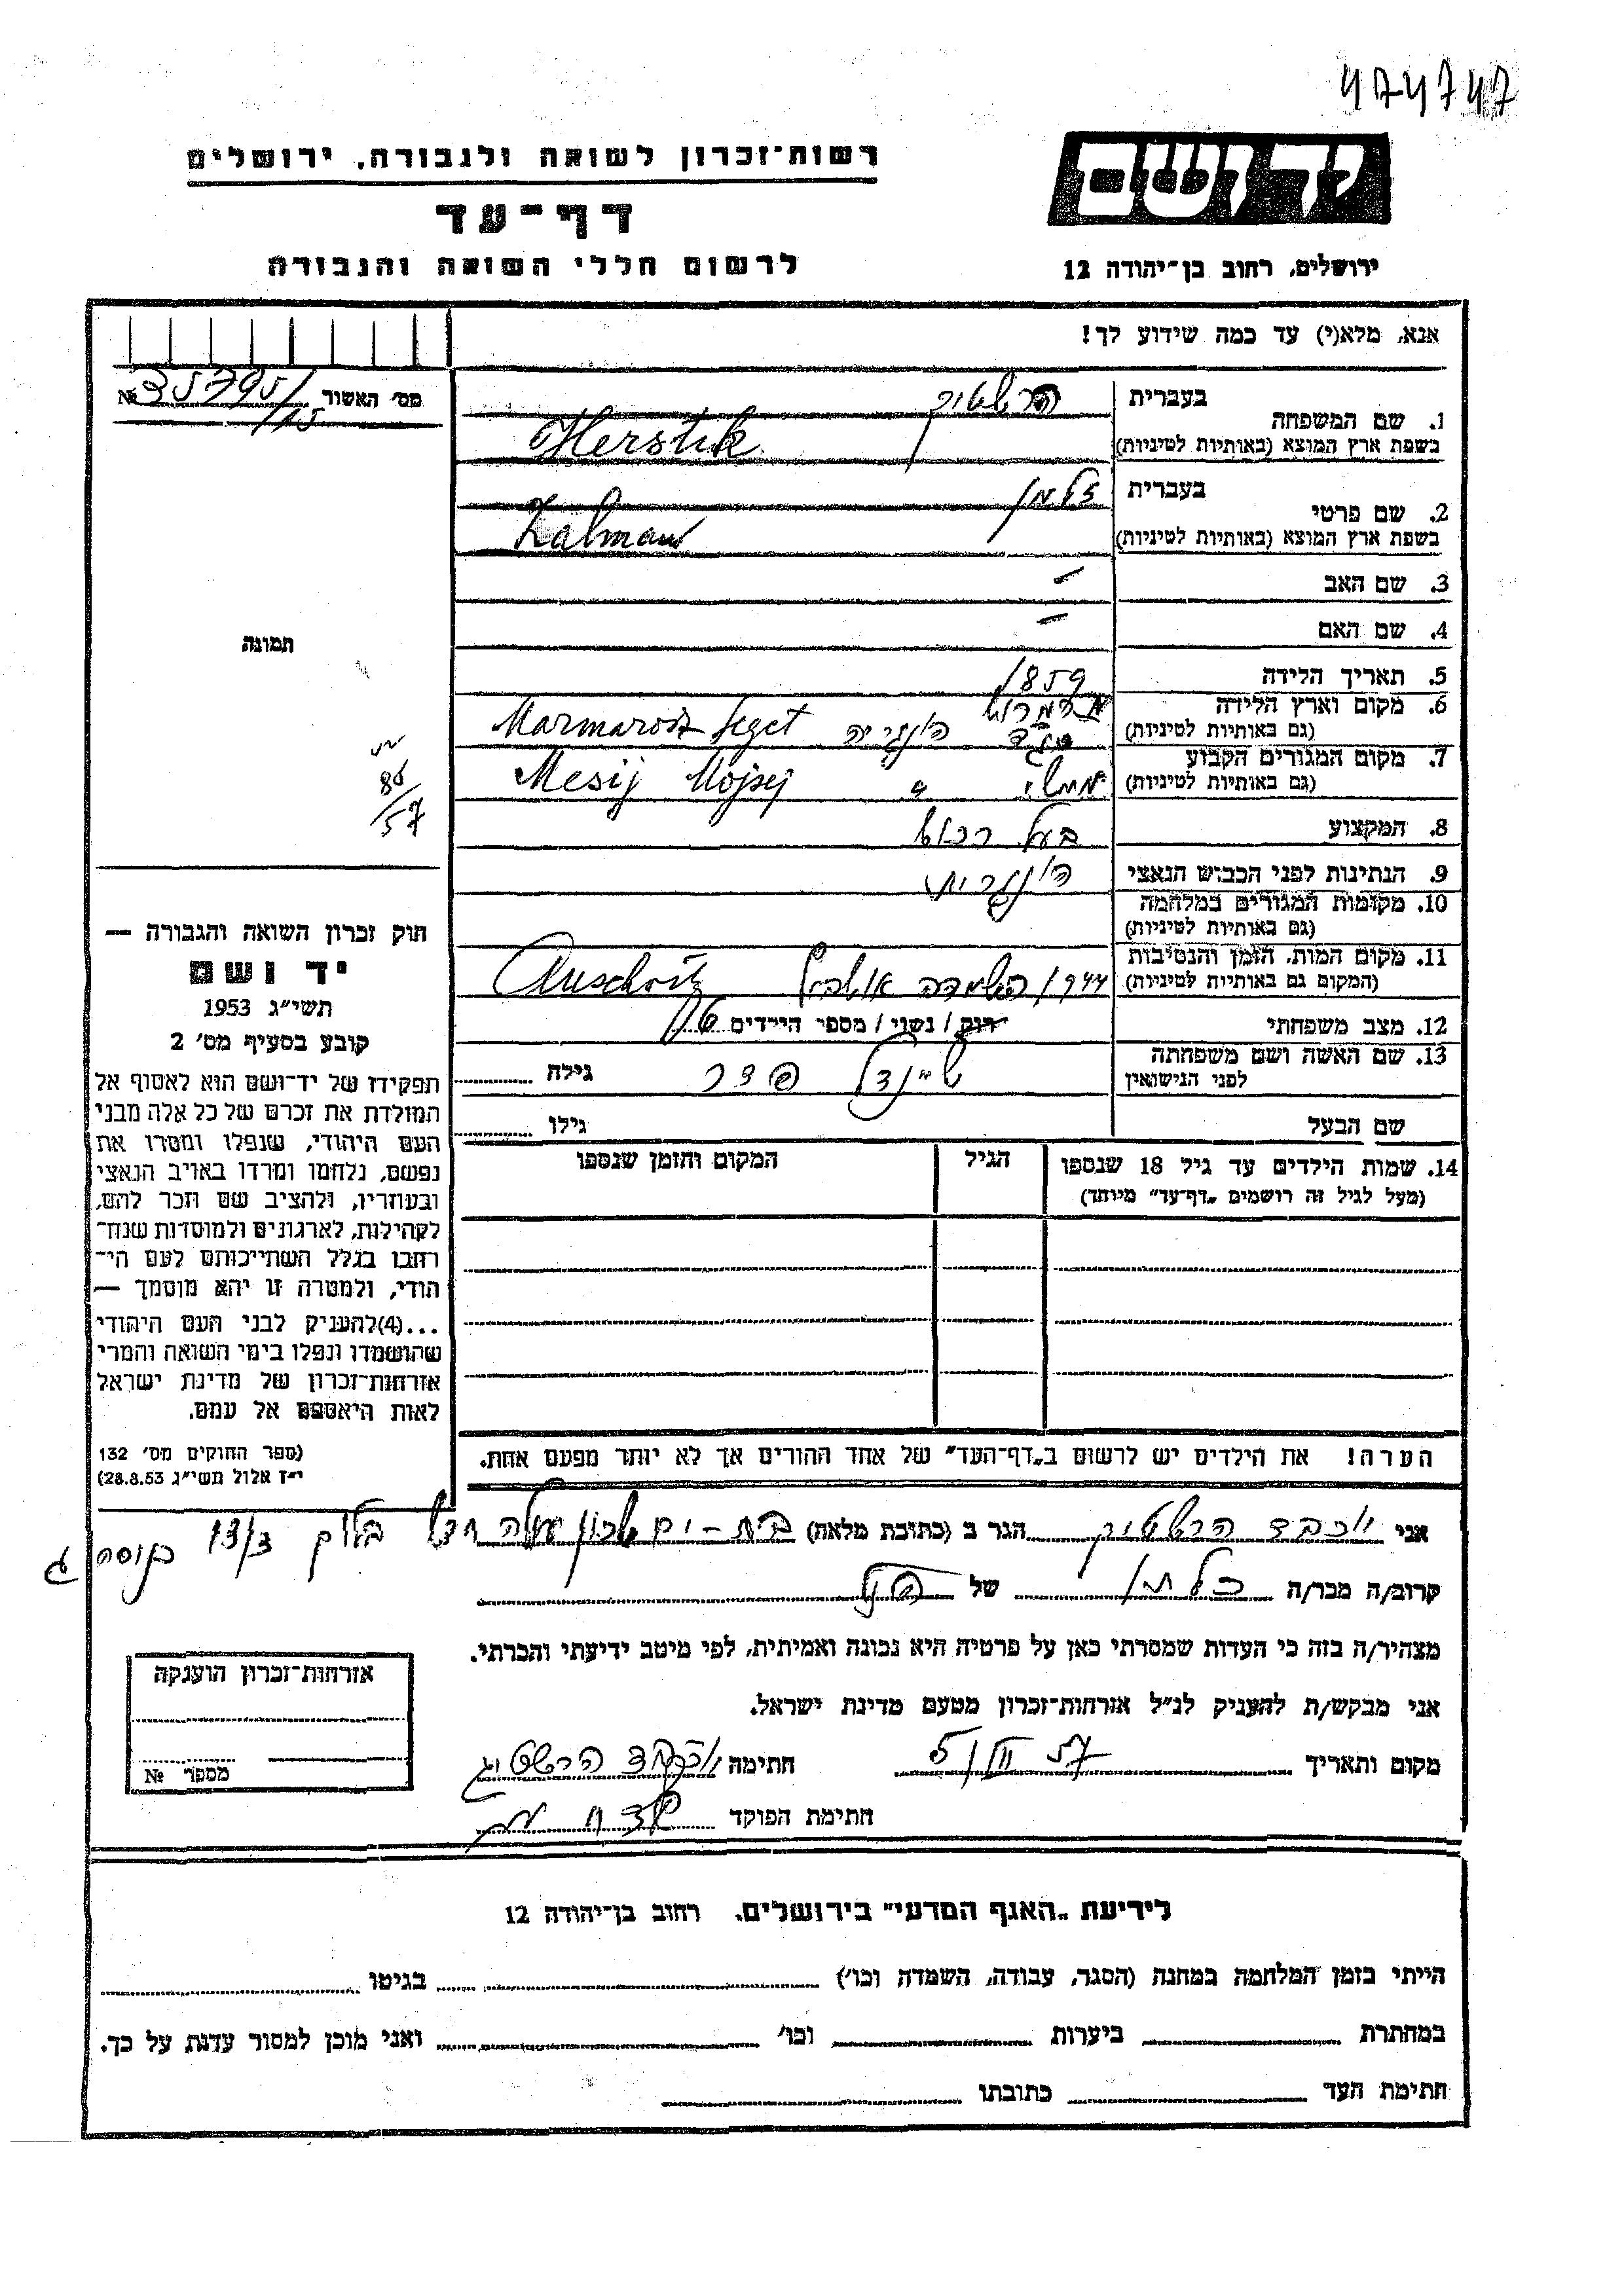 474747
רשות־זכרון לשואה ולגבורה, ירושלים
יד ושם
דף־עד
לרשום חללי השואה והגבורה
ירושלים, רחוב בן־יהודה 12
אנא, מלא(י) עד כמה שידוע לך!
מס׳ האשור № 35795/
/15
1. שם המשפחה
בעברית הרשטיק
בשפת ארץ המוצא (באותיות לטיניות) Herstik
2. שם פרטי
בעברית זלמן
בשפת ארץ המוצא (באותיות לטיניות) Zalman
3. שם האב –
4. שם האם –
תמונה
5. תאריך הלידה 1859
6. מקום וארץ הלידה מרמרוש
(גם באותיות לטיניות) סגט הונגריה Marmarosz Seget
7. מקום המגורים הקבוע
(גם באותיות לטיניות) " Mesij Mojsej
86/57
8. המקצוע בעל רכוש
9. הנתינות לפני הכבוש הנאצי הונגרית
10. מקומות המגורים במלחמה
(גם באותיות לטיניות)
11. מקום המות, הזמן והנסיבות
(המקום גם באותיות לטיניות) 1944 השמדה Auschvitz
12. מצב משפחתי רווק / נשוי / מספר הילדים
13. שם האשה ושם משפחתה
לפני הנישואין שיינדל פדר גילה
שם הבעל גילו
14. שמות הילדים עד גיל 18 שנספו הגיל המקום והזמן שנספו
(מעל לגיל זה רושמים „דף־עד” מיוחד)
חוק זכרון השואה והגבורה —
יד ושם
תשי״ג 1953
קובע בסעיף מס׳ 2
תפקידו של יד־ושם הוא לאסוף אל
המולדת את זכרם של כל אלה מבני
העם היהודי, שנפלו ומסרו את
נפשם, נלחמו ומרדו באויב הנאצי
ובעוזריו, ולהציב שם וזכר להם,
לקהילות, לארגונים ולמוסדות שנח־
רבו בגלל השתייכותם לעם הי־
הודי, ולמטרה זו יהא מוסמך —
...(4)להעניק לבני העם היהודי
שהושמדו ונפלו בימי השואה והמרי
אזרחות־זכרון של מדינת ישראל
לאות היאספם אל עמם.
(ספר החוקים מס׳ 132
י״ז אלול תשי״ג 28.8.53)
הערה! את הילדים יש לרשום ב„דף־העד” של אחד ההורים אך לא יותר מפעם אחת.
אני יוכבד הרשטיק הגר ב (כתובת מלאה) בת-ים שכון עולה חדש בלוק 13/3 כניסה ג
קרוב/ה מכר/ה כלתו של הנ״ל
מצהיר/ה בזה כי העדות שמסרתי כאן על פרטיה היא נכונה ואמיתית, לפי מיטב ידיעתי והכרתי.
אני מבקש/ת להעניק לנ״ל אזרחות־זכרון מטעם מדינת ישראל.
מקום ותאריך 5/VII 57 חתימה יוכבד הרשטיג
חתימת הפוקד
אזרחות־זכרון הוענקה
מספר №
לידיעת „האגף המדעי” בירושלים, רחוב בן־יהודה 12
הייתי בזמן המלחמה במחנה (הסגר, עבודה, השמדה וכו׳) בגיטו
במחתרת ביערות וכו׳ ואני מוכן למסור עדות על כך.
חתימת העד כתובתו